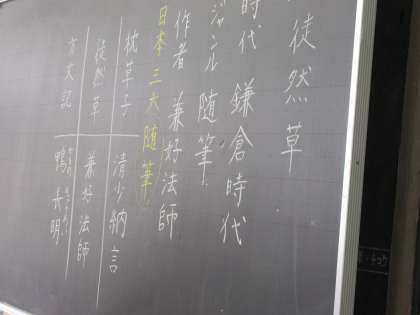 徒然草
時代 鎌倉時代
ジャンル 随筆
作者 兼好法師
日本三大随筆
枕草子 清少納言
徒然草 兼好法師
方丈記 鴨長明